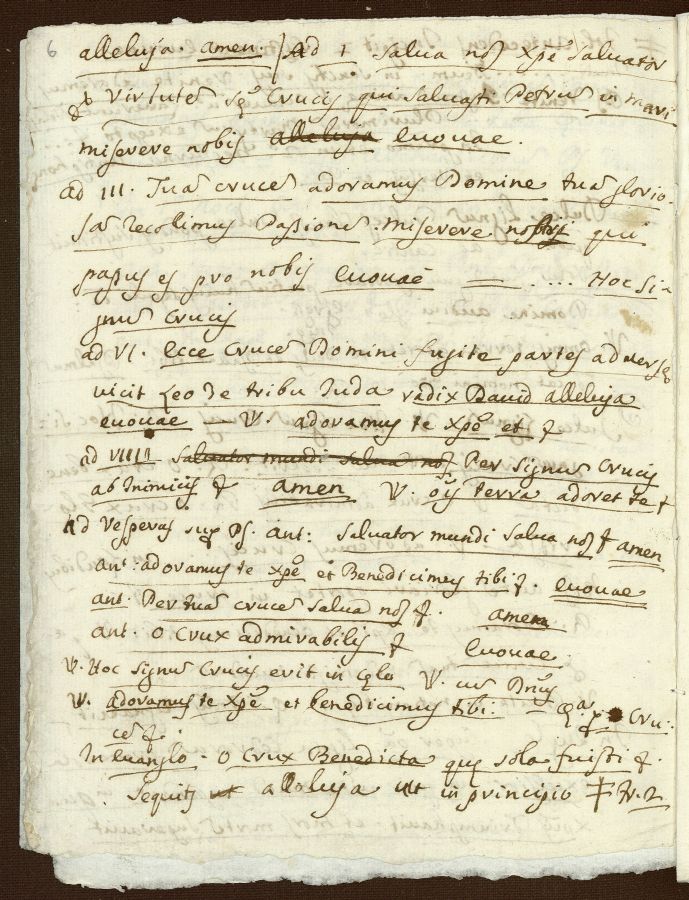 6 alleluja. amen. / Ad 1 Salva nos xpē Salvator
& virtutē Sq̄ Crucis qui Salvasti Petrum in mari
miserere nobis alleluja euouae.
ad III. Tuā crucē adoramus Domine tuā glorio-
sā recolimus Passionē. miserere nobis qui
passus es pro nobis euouae = .... Hoc Si-
gnū Crucis
ad VI. Ecce Crucē Domini fugite partes adverse
vicit Leo de tribu Juda radix David alleluja
euouae — V. adoramus te xpē et &
ad VIIII Salvator mundi Salva nos Per signū Crucis
ab Inimicis & amen V. ois terra adoret te &
Ad Vesperas sup Ps. ant: Salvator mundi Salva nos & amen
ant: adoramus te xpē et Benedicimus tibi &. euouae
ant. Per tuā crucē Salva nos &. amen
ant. O Crux admirabilis & euouae.
V. Hoc Signū Crucis erit in celo V. cū Dnus
V. adoramus te xpē et benedicimus tibi. — Qa p Cru:
cē &.
In euanglo - O Crux Benedicta que sola fuisti &.
Sequits alleluja ut in principio ‡ N. 2